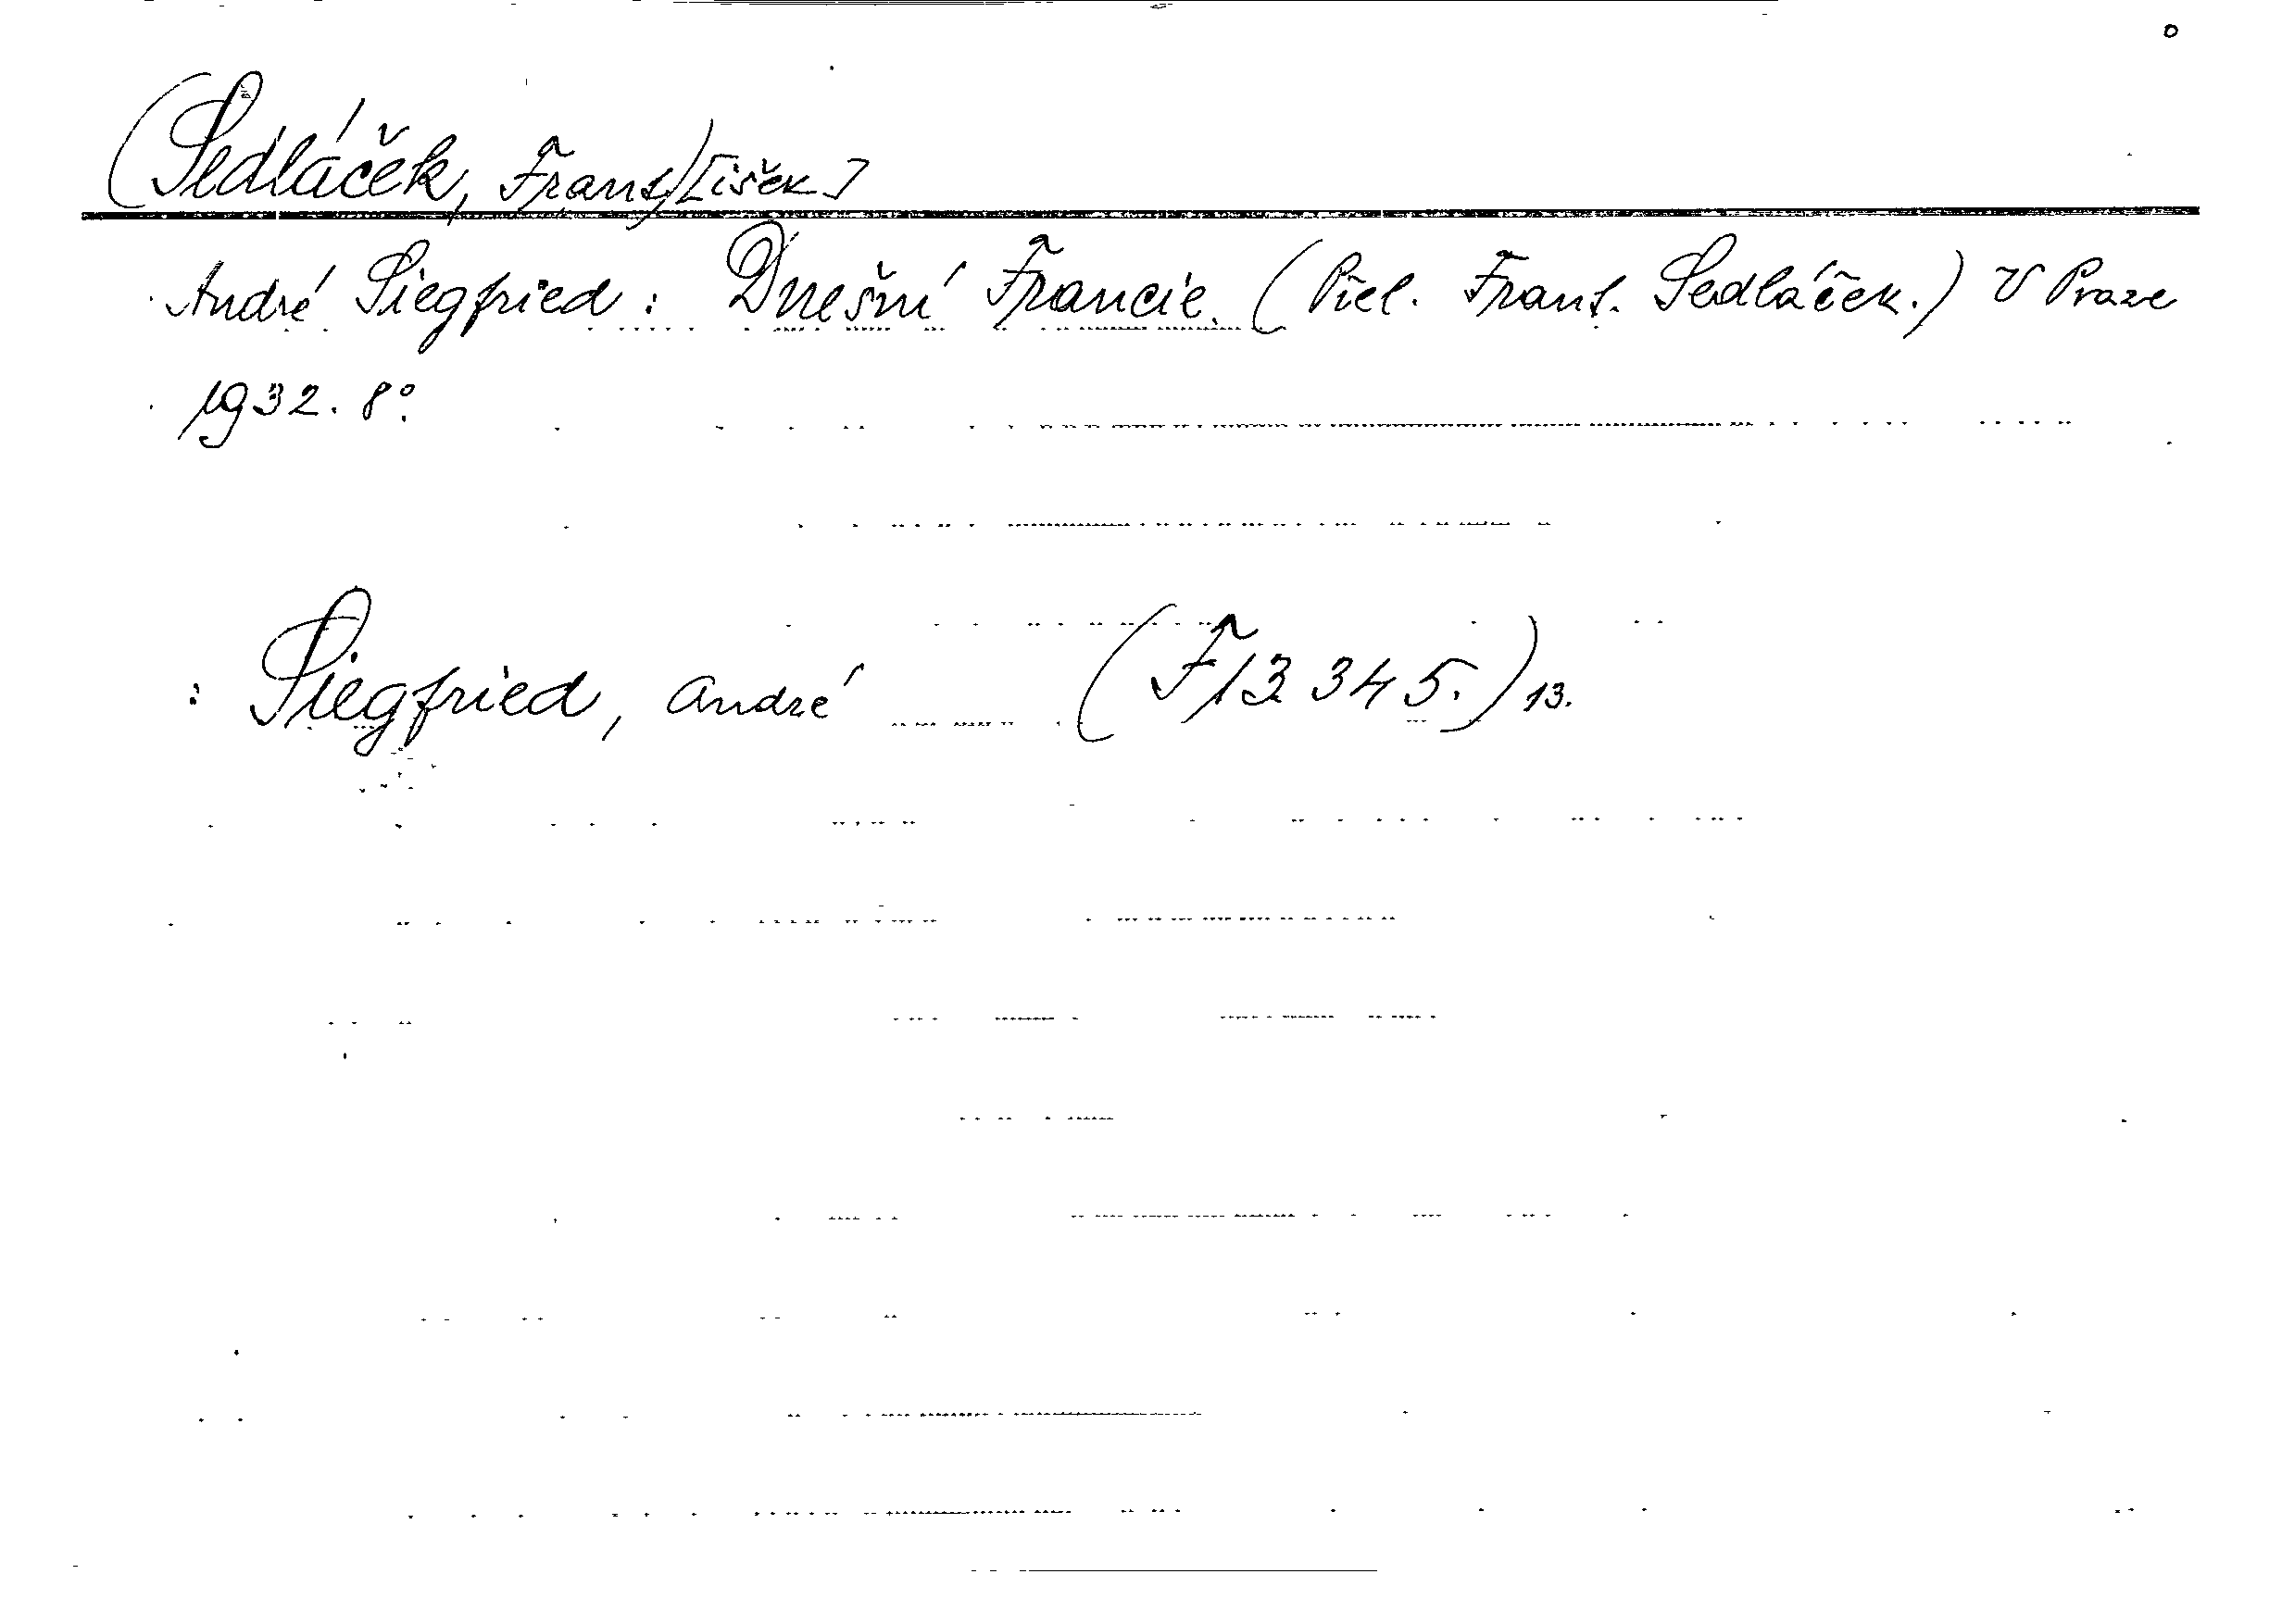 (Sedláček, Frant.)[išek]
André Siegfried: Dnešní Francie. (Přel. Frant. Sedláček.) V Praze
1932. 8°.
: Siegfried, André (F 13 345.) 13.